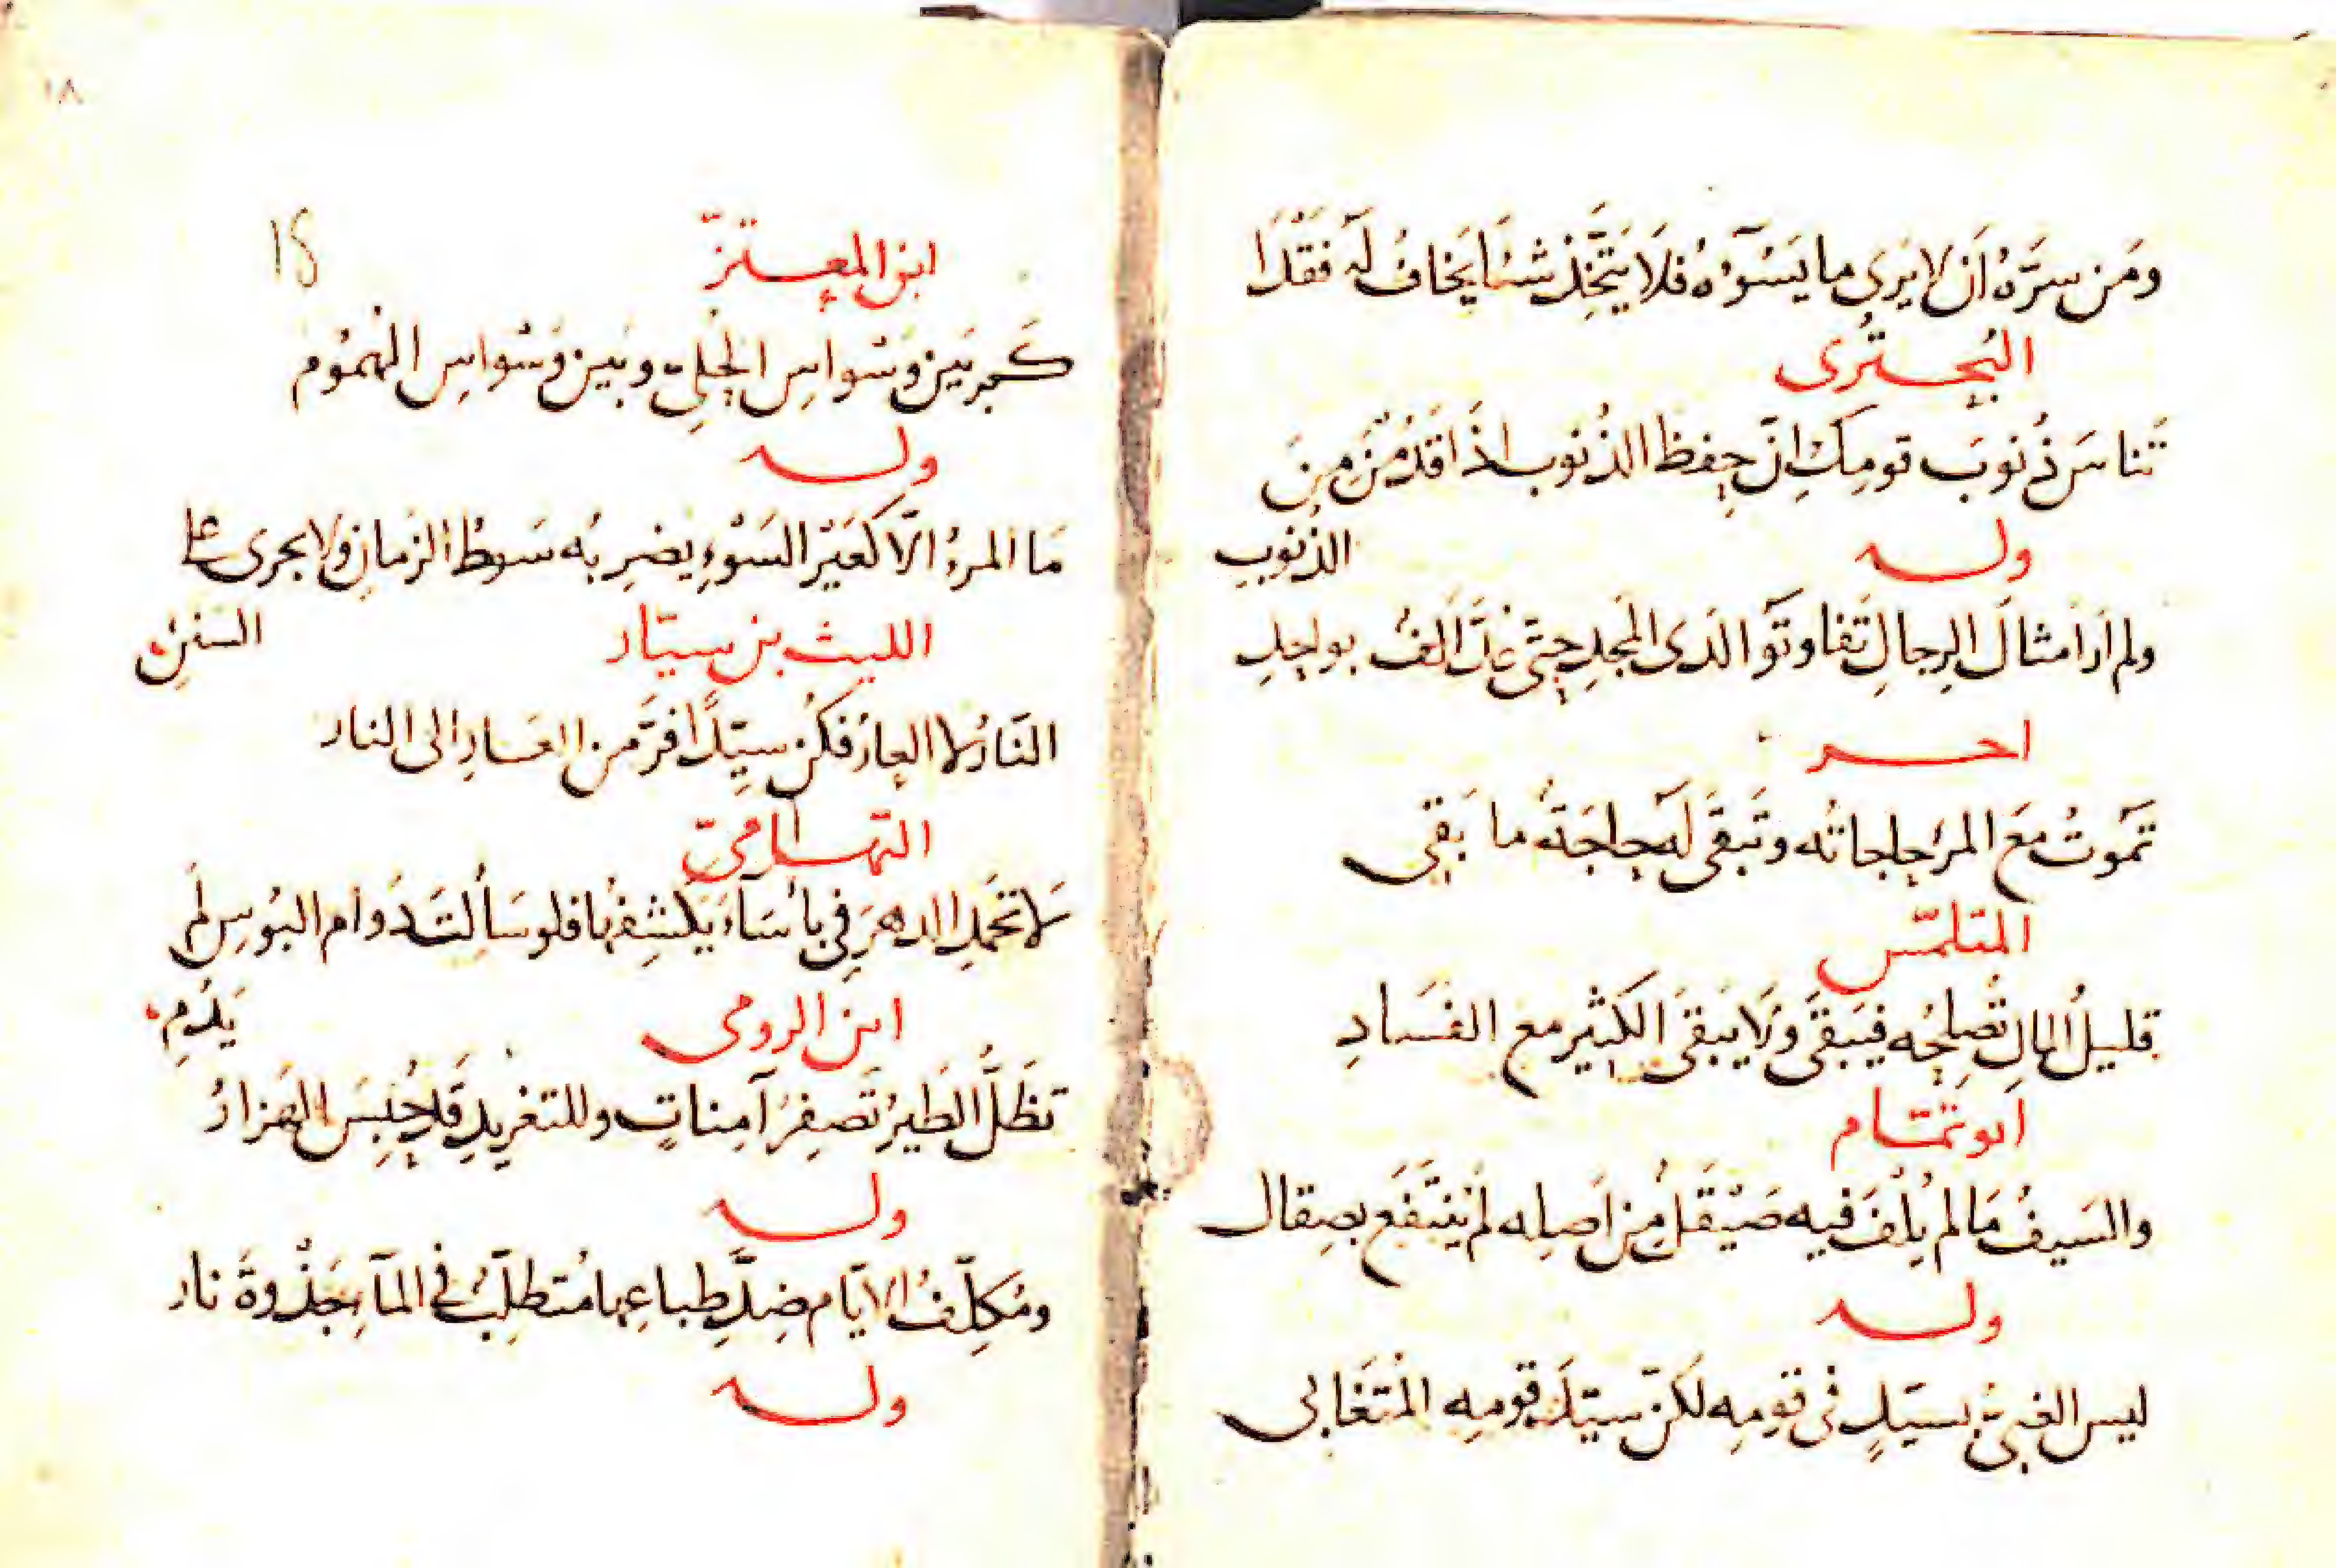 ومَن سرَّهُ اَن لا يَرى ما يَسُوٓءُهُ فلَا يَتَّخِذ شيًا يَخافُ لَهُ فَقْدَا
البُحتُرى
تَناسَ ذُنوبَ قومِكِ انّ حِفظ الذُنوب اذَا قَدُمْنَ مِنَ
الذنوبِ
وله
ولم اَر اَمثالَ الرِجالِ تَفاوتَوا لَدى المَجدِ حتّى عُدَّ اَلفٌ بواحِدِ
اخر
تَموتُ مَعَ المرَ حاجاتُه وتَبقَى لَه حاجَةٌ ما بَقى
المتلمّس
قليلُ المالِ تُصلِحُه فيَبقَى وَلا يَبقَى الكثير مع الفَسادِ
ابو تمّام
والسَيفُ مَا لم يُلفَ فيه صَيْقَلٌ مِن اَصلِه لم يَنتَفَع بصِقال
وله
ليس الغبىُّ بسيّدٍ فى قومِه لكنّ سيّدَ قومِه المُتَغَابى
١٨
18
ابن المعتزّ
كم بَين وَسْواسِ الحُلِىّ وبَين وَسْواسِ الهُمُوم
وله
مَا المرءُ الّا كعَيْر السَوْءِ يضرِبُه سَوطُ الزمانِ ولا يجرى على
السَنَنِ
الليث بن سيّار
النَارُ لا العارُ فكُن سيِّدًا فرَّ من العَارِ الى النار
التهامىّ
لا تحَمدِ الدهرَ فى بأسَآءَ يَكشِفُها فلو سَأَلتَ دَوام البُوسِ لَم
يَدُمِ
ابن الرومى
تظَلُّ الطَيرُ تَصفِرُ آمِناتٍ وللتغرِيدِ قَد حُبِسَ الهَزارُ
وله
ومُكلِّفُ الايّام ضِدَّ طِباعِها مُتطلِّبٌ فى المآءِ جَذْوةَ نار
وله